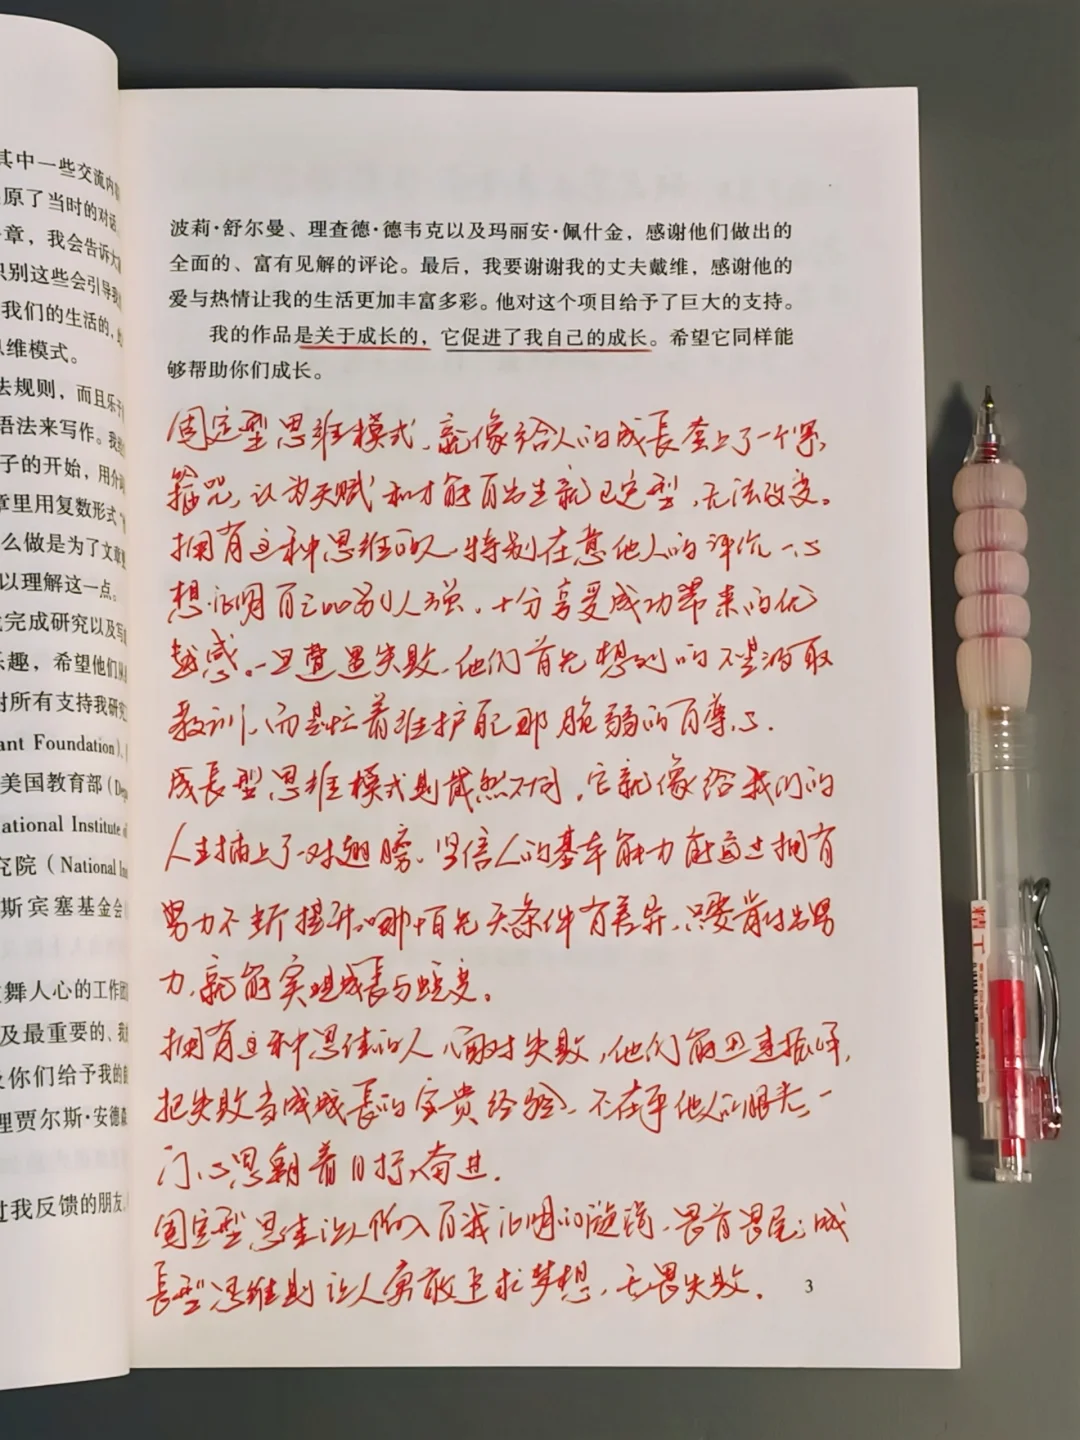 其中一些交流内容
原了当时的对话
章，我会告诉大家
识别这些会引导我
我们的生活的，
思维模式。
法规则，而且乐于
语法来写作。我
子的开始，用介词
章里用复数形式“
么做是为了文章
以理解这一点。
完成研究以及写
乐趣，希望他们从
对所有支持我研究
ant Foundation）、
美国教育部（Dep
ational Institute of
究院（National In
斯宾塞基金会（
舞人心的工作团
及最重要的、我
及你们给予我的
理贾尔斯·安德森
过我反馈的朋友、
波莉·舒尔曼、理查德·德韦克以及玛丽安·佩什金，感谢他们做出的
全面的、富有见解的评论。最后，我要谢谢我的丈夫戴维，感谢他的
爱与热情让我的生活更加丰富多彩。他对这个项目给予了巨大的支持。
我的作品是关于成长的，它促进了我自己的成长。希望它同样能
够帮助你们成长。
固定型思维模式，就像给人的成長套上了一个紧
箍咒，认为天赋和才能自出生就已定型，无法改变。
拥有这种思维的人，特别在意他人的评价，一心
想证明自己比别人强，十分享受成功带来的优
越感。一旦遭遇失败，他们首先想到的不是汲取
教训，而是忙着维护自己那脆弱的自尊心。
成長型思维模式则截然不同，它就像给我们的
人生插上了一对翅膀，坚信人的基本能力能通过拥有
努力不断提升，哪怕先天条件有差异，只要肯付出努
力，就能实现成長与蜕变。
拥有这种思维的人，面对失败，他们能迅速振作，
把失败当成成長的宝贵经验，不在乎他人的眼光，一
门心思朝着目标奋进。
固定型思维让人陷入自我证明的漩涡，畏首畏尾；成
長型思维则让人勇敢追求梦想，无畏失败。
3
精工